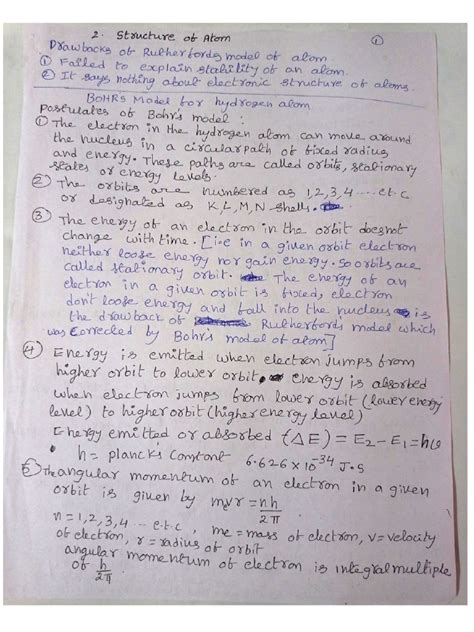 2. Structure of Atom
①
Drawbacks of Rutherfords model of atom.
① Failed to explain stability of an atom.
② It says nothing about electronic structure of atoms.
BOHRs Model for hydrogen atom
Postulates of Bohr's model :
① The electron in the hydrogen atom can move around
the nucleus in a circular path of fixed radius
and energy. These paths are called orbits, stationary
states or energy levels.
② The orbits are numbered as 1,2,3,4 .... etc
or designated as K,L,M,N shells.
③ The energy of an electron in the orbit doesnot
change with time. [i.e in a given orbit electron
neither loose energy nor gain energy. so orbits are
called stationary orbit. The energy of an
electron in a given orbit is fixed, electron
don't loose energy and fall into the nucleus is
the drawback of Rutherford's model which
was corrected by Bohr's model of atom]
④ Energy is emitted when electron jumps from
higher orbit to lower orbit. energy is absorbed
when electron jumps from lower orbit (lower energy
level) to higher orbit (higher energy level)
Energy emitted or absorbed (ΔE) = E2 - E1 = hυ
h = plancks constant 6.626 x 10^-34 J.S
⑤ The angular momentum of an electron in a given
orbit is given by mevr = nh/2π
n = 1,2,3,4 .. etc, me = mass of electron, v = velocity
of electron, r = radius of orbit
angular momentum of electron is integral multiple
of h/2π